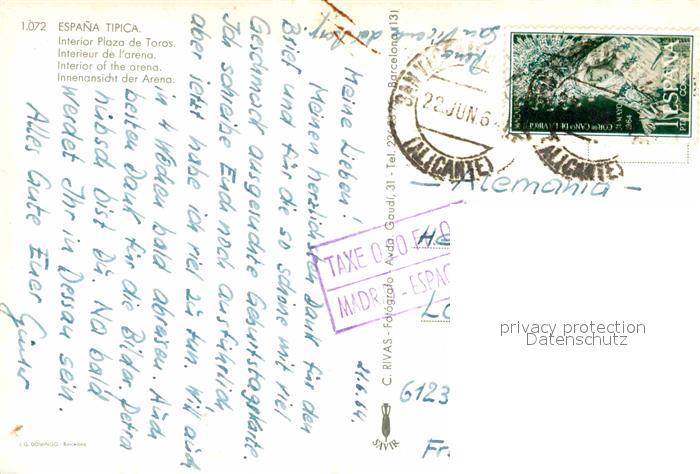 1.072 ESPAÑA TIPICA.
Interior Plaza de Toros.
Interieur de l'arena.
Interior of the arena.
Innenansicht der Arena.
21.6.64.
Meine Lieben!
Meinen herzlichsten Dank für den
Brief und für die so schöne mit viel
Geschmack ausgesuchte Geburtstagskarte.
Ich schreibe Euch noch ausführlich
aber jetzt habe ich viel zu tun. Will auch
in 4 Wochen bald abreisen. Auch
besten Dank für die Bilder. Petra
hübsch bist Du. Na bald
werdet Ihr in Dessau sein.
Alles Gute Euer Günter
J. G. DOMINGO - Barcelona
C. RIVAS - Fotógrafo - Avda. Gaudí, 31 - Tel. Barcelona (13)
SAVIR
San Vicente del
22 JUN 6
(ALICANTE)
ALICANTE)
ESPAÑA
1 PTA
CORREOS
1964
- Alemania -
TAXE 0,20
MADRID - ESPAÑ
6123
Fr
privacy protection
Datenschutz